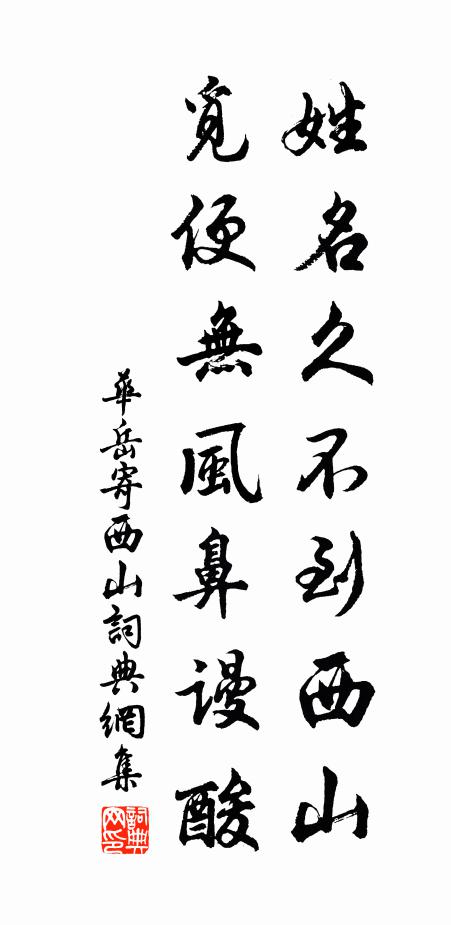 姓名久不到西山
覓便無風鼻謾酸
華岳寄西山詞典網集
詞典網印